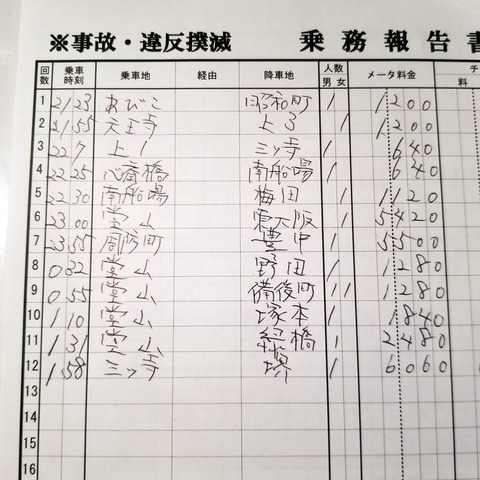 ※事故・違反撲滅 乗務報告書
回数 乗車時刻 乗車地 経由 降車地 人数 男 女 メータ料金 チ 料
1 21 23 あびこ 昭和町 1 1200
2 21 55 天王寺 上3 1 1200
3 22 7 上1 三ッ寺 1 640
4 22 25 心斎橋 南船場 1 640
5 22 30 南船場 梅田 1 1120
6 23 00 堂山 東大阪 1 5420
7 23 55 周防町 豊中 1 5500
8 0 32 堂山 野田 1 1280
9 0 55 堂山 備後町 1 1 1280
10 1 10 堂山 塚本 1 1840
11 1 31 堂山 橋 1 2480
12 1 58 三ッ寺 堺 1 6060
13
14
15
16